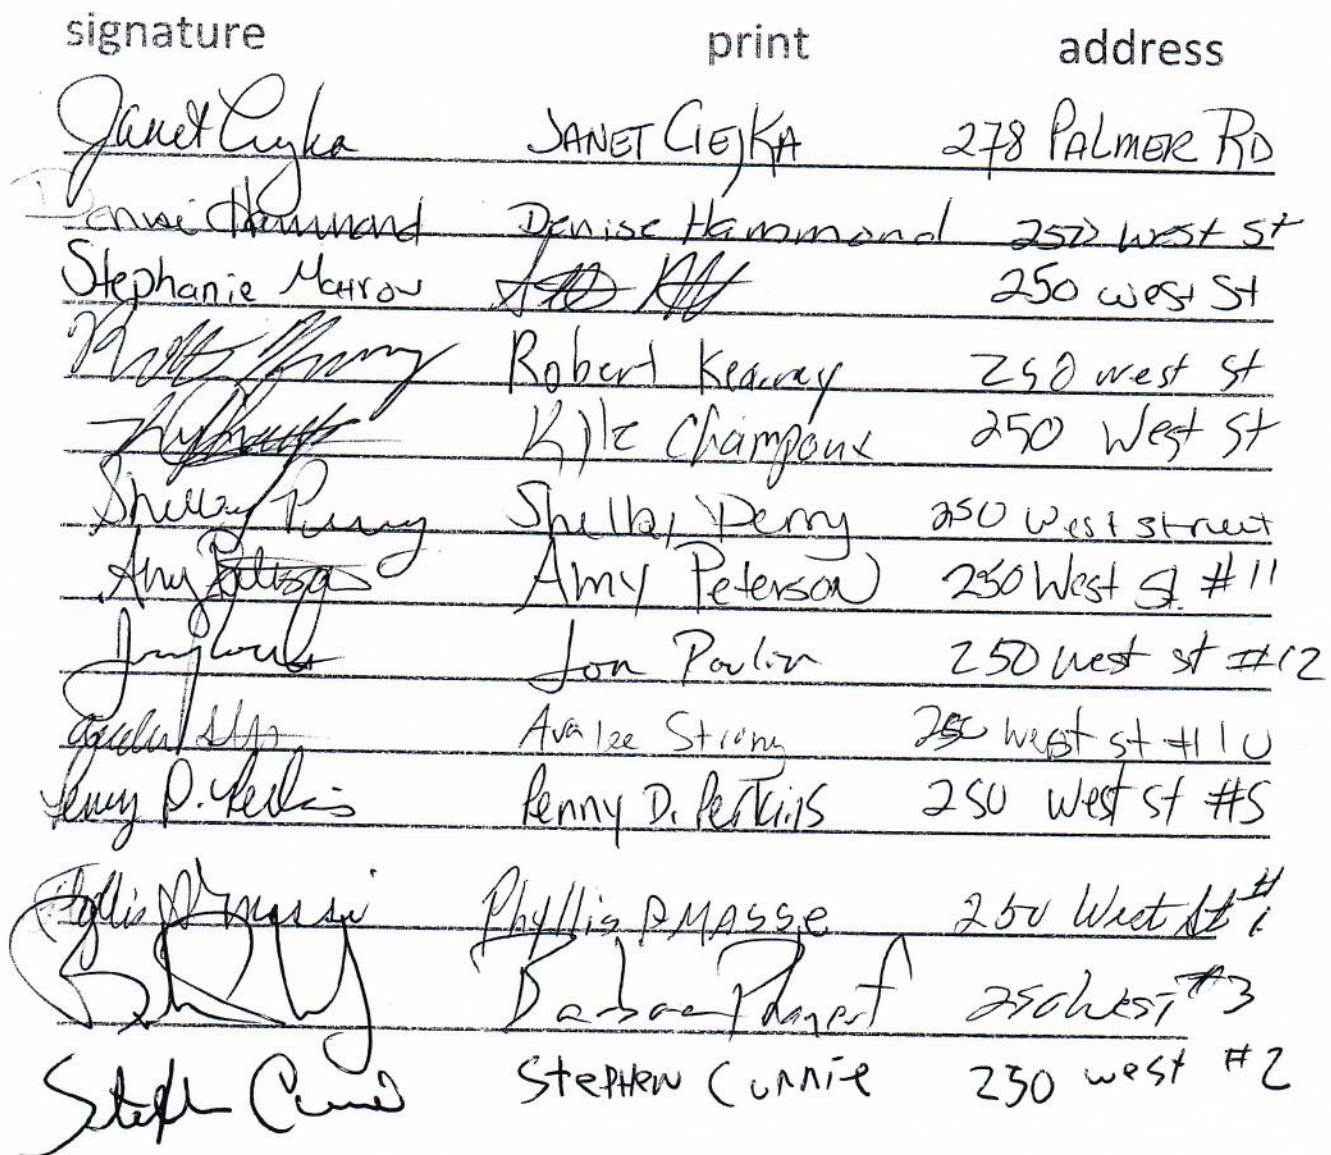 signature print address
Janet Ciejka JANET CIEJKA 278 PALMER RD
Denise Hammond Denise Hammond 250 West St
Stephanie Marrow 250 west St
Robert Kearney 250 west st
Kyle Champoux 250 West St
Shelby Perry Shelby Perry 250 West street
Amy Peterson Amy Peterson 250 West St. #11
Jon Poulin 250 west st #12
Avalee Strong 250 west st #10
Penny D. Perkins Penny D. Perkins 250 West St #5
Phyllis Masse Phyllis A MASSE 250 West St #1
Barbara 250 West #3
Stephen StepHen Cunnie 250 west #2